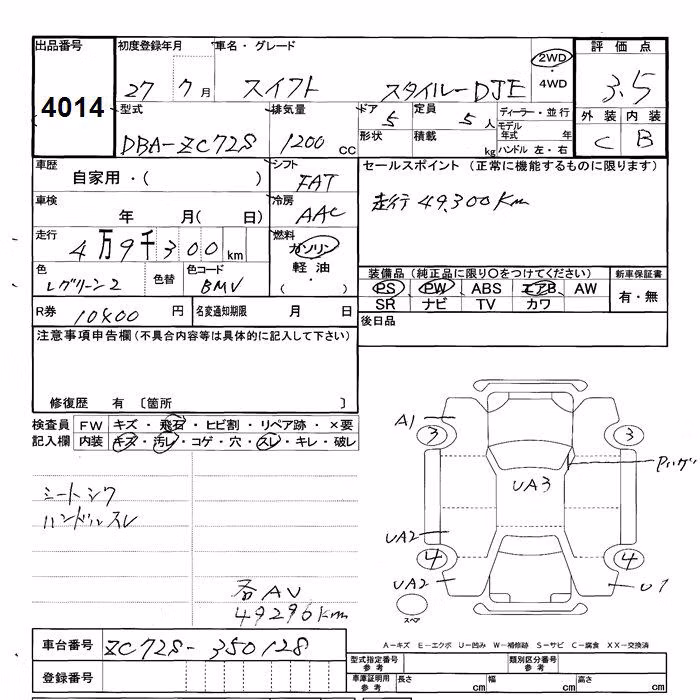 出品番号 初度登録年月 車名・グレード 評価点
4014 27 7月 スイフト スタイルーDJE 2WD・4WD 3.5
型式 排気量 ドア 定員 ディーラー・並行 外装 内装
DBA-ZC72S 1200cc 5 5人 モデル年式 年 C B
形状 積載 kg ハンドル 左・右
車歴 シフト セールスポイント (正常に機能するものに限ります)
自家用・( ) FAT
車検 冷房 走行49,300Km
年 月( 日) AAC
走行 燃料
4万9千300km ガソリン
軽油
( )
色 色替 色コード 装備品(純正品に限り○をつけてください) 新車保証書
BMV PS PW ABS エアB AW 有・無
SR ナビ TV カワ
R券 10400円 名変通知期限 月 日 後日品
注意事項申告欄(不具合内容等は具体的に記入して下さい)
修復歴 有 〔箇所 〕
検査員 FW キズ・飛石・ヒビ割・リペア跡・×要
記入欄 内装 キズ・汚レ・コゲ・穴・スレ・キレ・破レ
A1
3 3
UA3
シートシワ
ハンドルスレ
UA2
4 4
UA2 U1
スペア
各AU
49296km
車台番号 ZC72S-350128
A-キズ E-エクボ U-凹み W-補修跡 S-サビ C-腐食 XX-交換済
登録番号
型式指定番号 参考 類別区分番号 参考
車庫証明用 参考 長さ cm 幅 cm 高さ cm